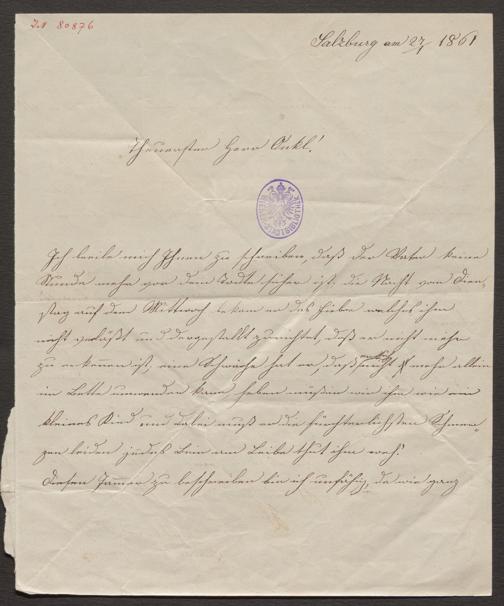 I.N 80876
Salzburg am 27/1 1861
Theuerster Herr Onkl!
Ich beeile mich Ihnen zu schreiben, daß der Vater keine
Stunde mehr vor dem Tode sicher ist, die Nacht von Dien-
stag auf den Mittwoch bekam er das Fieber welches ihn
nicht verläßt und dergestallt zurichtet, daß er nicht mehr
zu erkennen ist, eine Schwäche hat er, daß er sich nicht mehr allein
im Bette umwenden kann heben müßen wir ihn wie ein
kleines Kind und dabei muß er die fürchterlichsten Schmer-
zen leiden jedes Bein am Leibe thut ihm weh!
Diesen Jammer zu beschreiben bin ich unfähig, da wir ganz